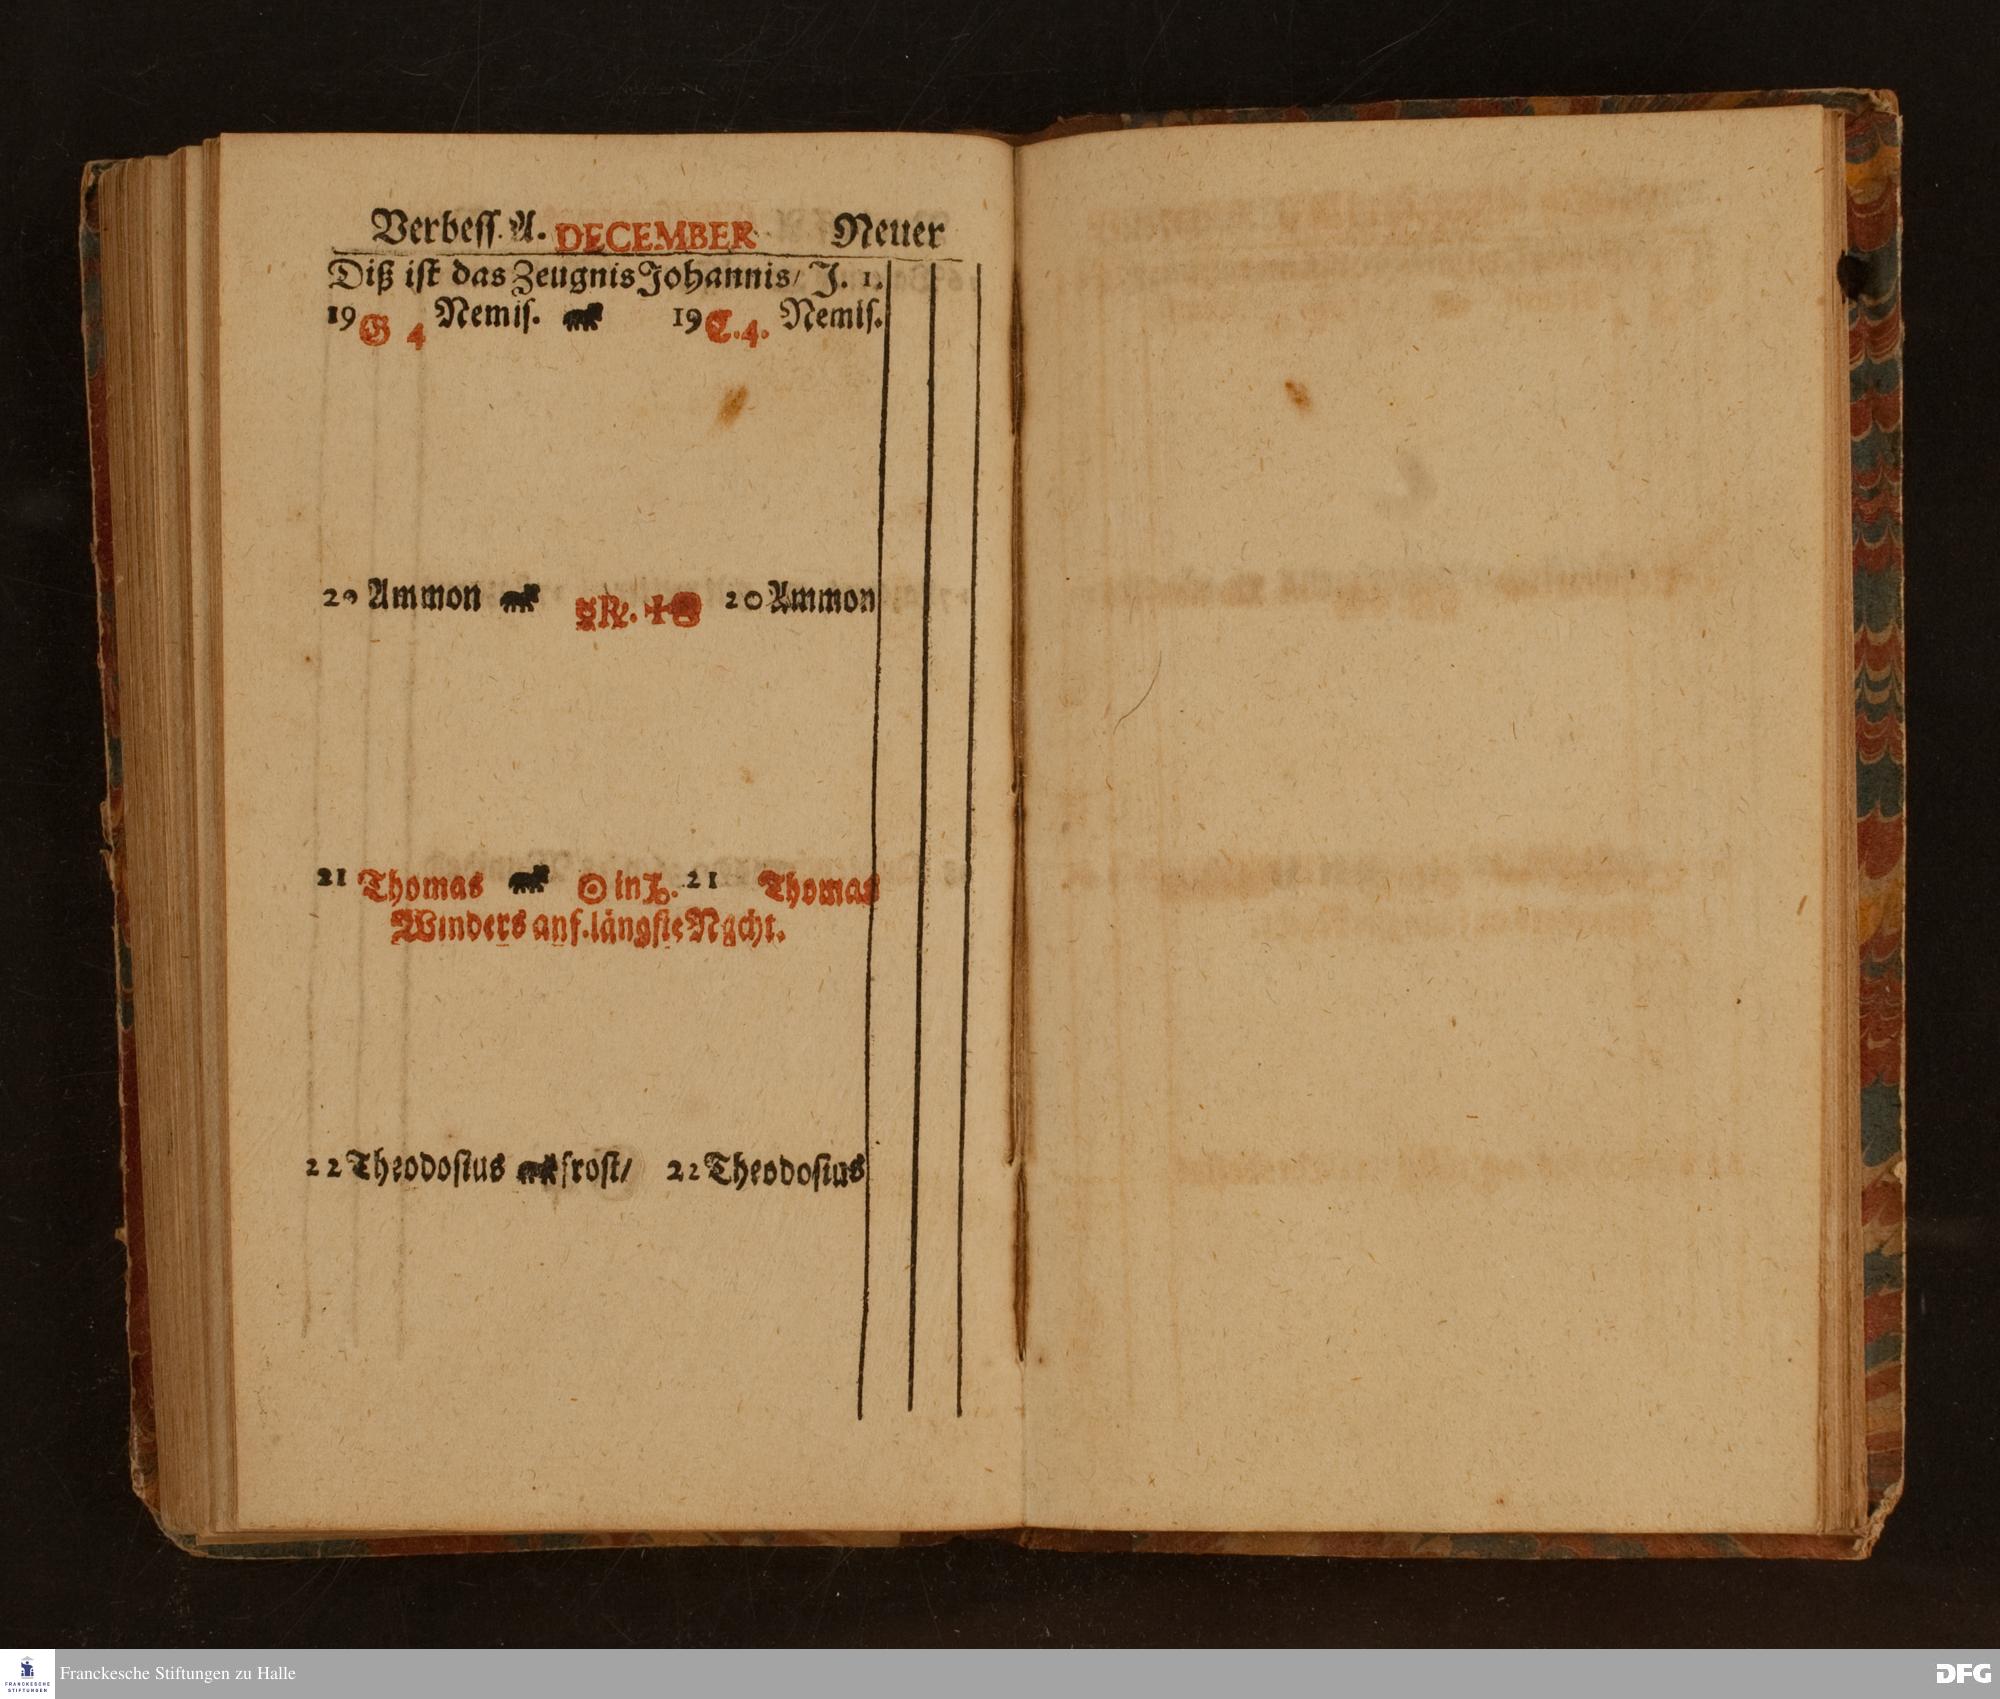 Verbess. A. DECEMBER Neuer
Diß ist das Zeugnis Johannis/ J. 1.
19 G 4 Nemis. 19 C. 4. Nemis.
20 Ammon 20 Ammon
21 Thomas ☉ in ♑. 21 Thomas
Winders anf. längste Nacht.
22 Theodosius frost/ 22 Theodosius
Franckesche Stiftungen zu Halle
FRANCKESCHE
STIFTUNGEN
DFG